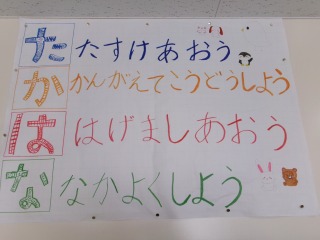 た たすけあおう
か かんがえてこうどうしよう
は はげましあおう
な なかよくしよう